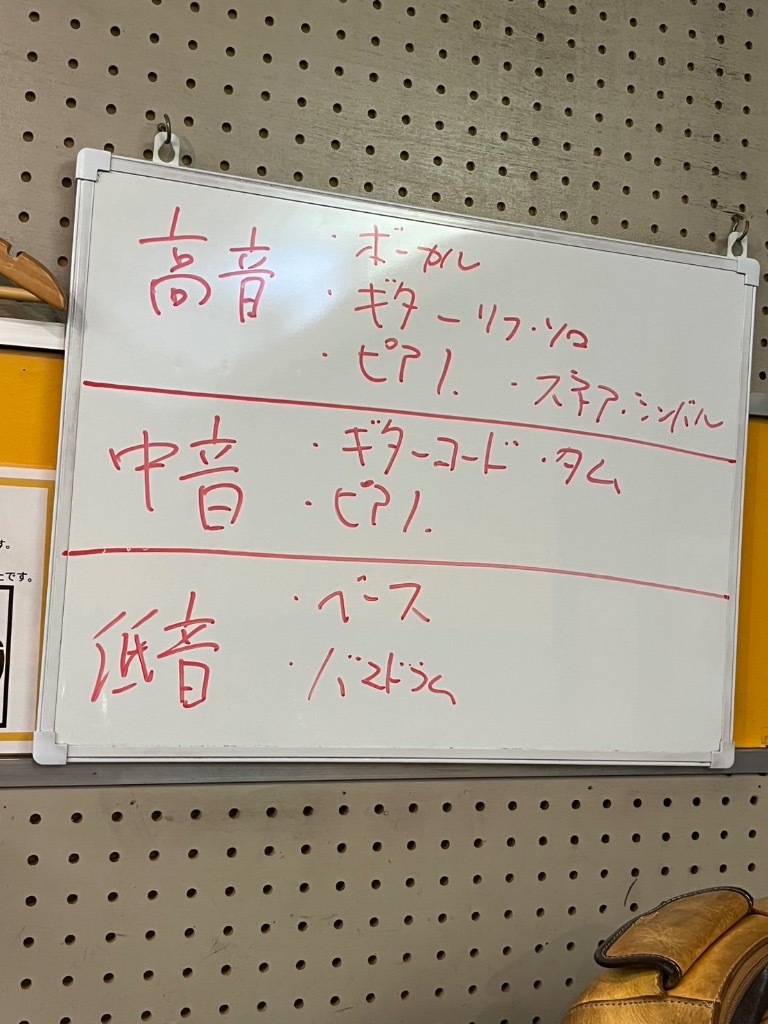 高音 ・ボーカル
・ギターリフ・ソロ
・ピアノ ・スネア・シンバル
中音 ・ギターコード ・タム
・ピアノ
低音 ・ベース
・バスドラム
す。
です。